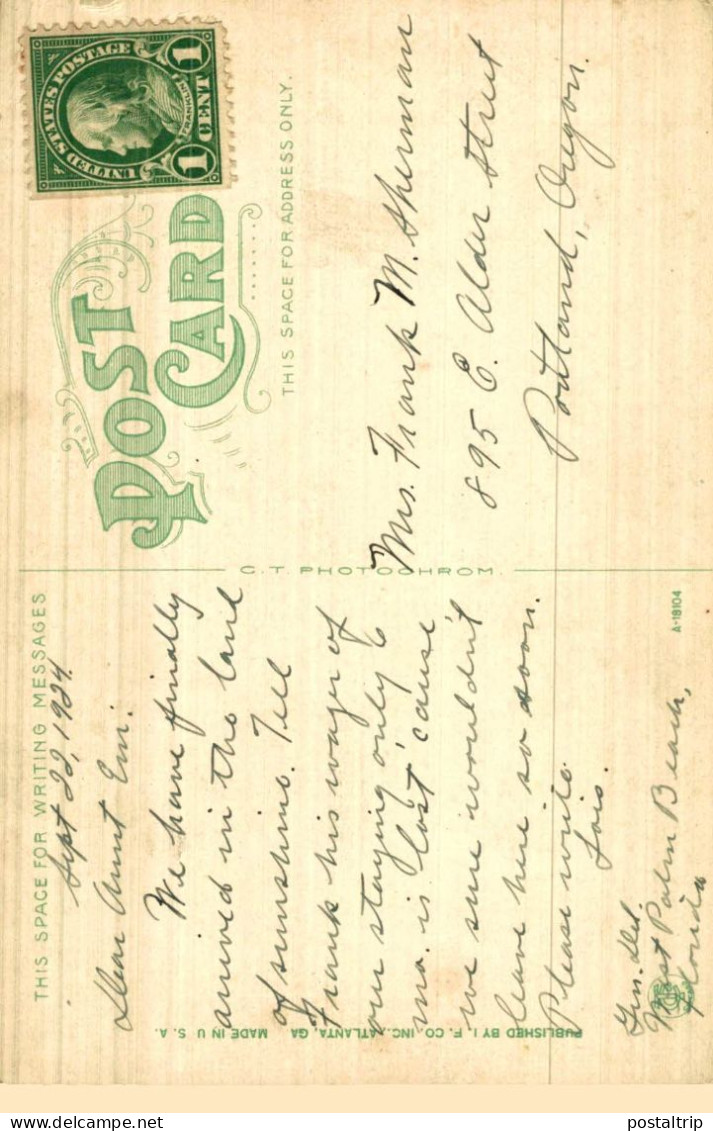 THIS SPACE FOR WRITING MESSAGES
Sept 22, 1924.
Dear Aunt Em.
We have finally
arrived in the land
of sunshine. Tell
Frank his wager of
our staying only 6
mo. is lost 'cause
we sure wouldn't
leave here so soon.
Please write
Lois.
Gen. Del.
West Palm Beach,
Florida
PUBLISHED BY I. F. CO. INC. ATLANTA, GA MADE IN U. S. A.
C. T. PHOTOCHROM.
A-18104
POST
CARD
THIS SPACE FOR ADDRESS ONLY.
UNITED STATES POSTAGE
FRANKLIN
1 CENT 1
Mrs. Frank M. Sherman
895 E. Alder Street
Portland, Oregon.
www.postaltrip.com
postaltrip